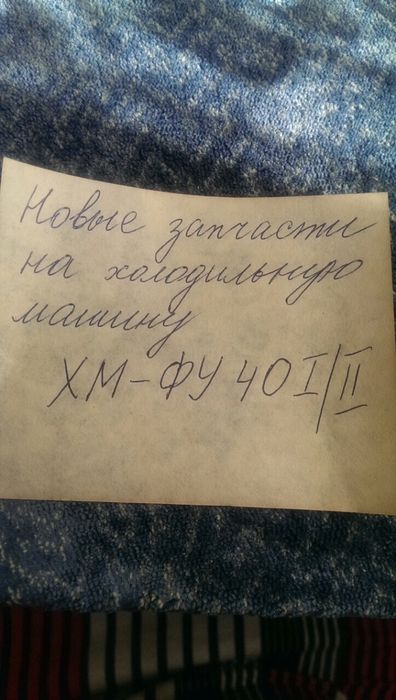 Новые запчасти
на холодильную
машину
ХМ-ФУ 40 I/II